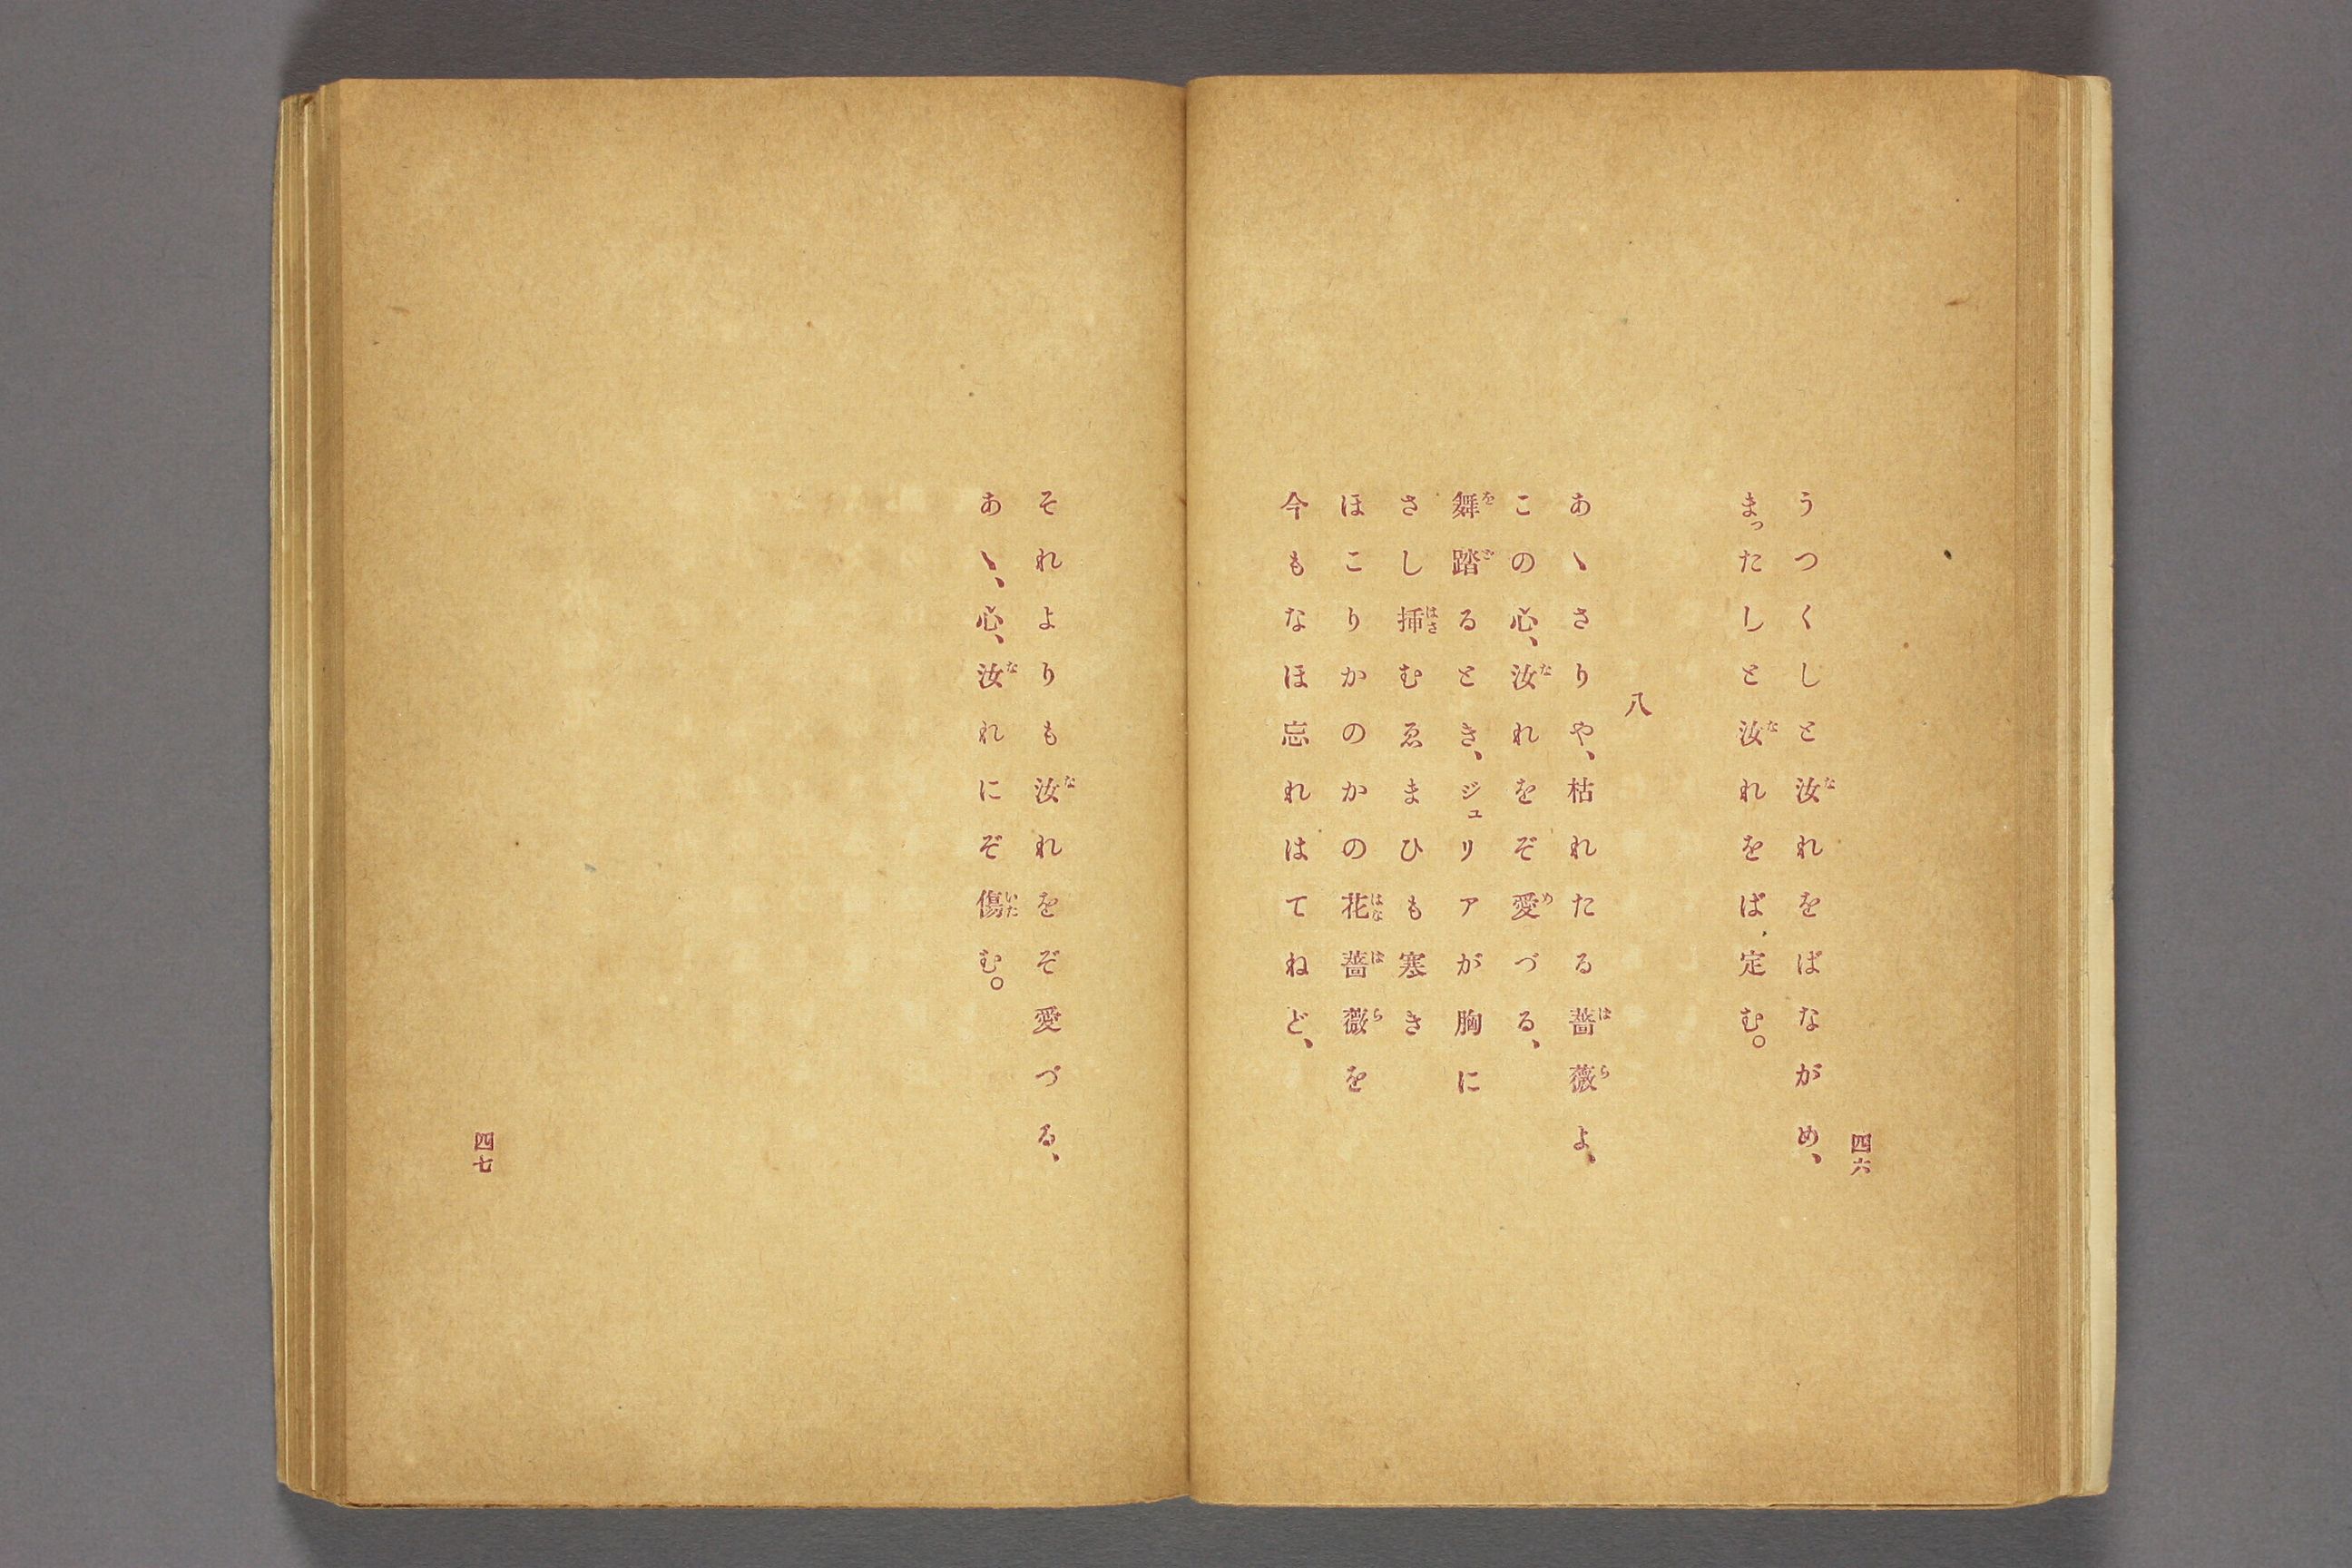 四六
うつくしと汝れをばながめ、
まつたしと汝れをば、定む。
八
あゝさりや、枯れたる薔薇よ、
この心、汝れをぞ愛づる、
舞踏るとき、ジュリアが胸に
さし挿むゑまひも寒き
ほこりかのかの花薔薇を
今もなほ忘れはてねど、
それよりも汝れをぞ愛づる、
あゝ、心、汝れにぞ傷む。
四七